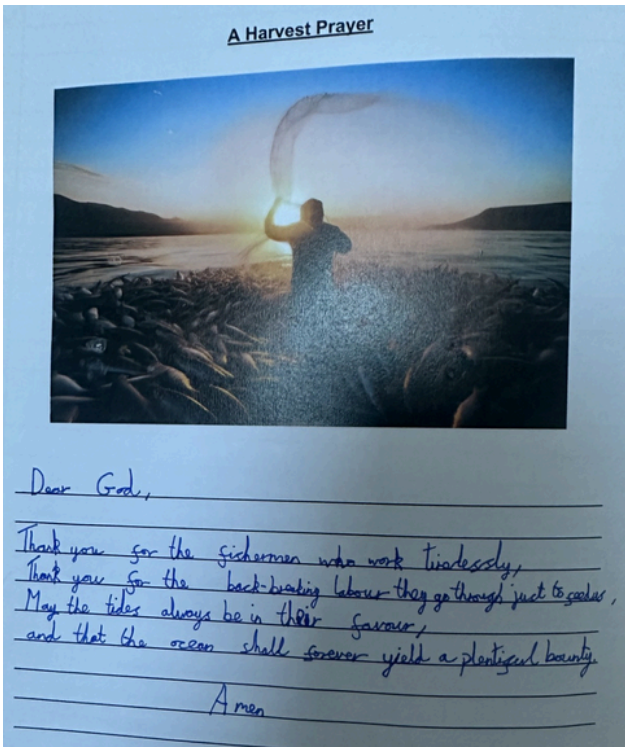 A Harvest Prayer
Dear God,
Thank you for the fishermen who work tirelessly,
Thank you for the back-breaking labour they go through just to feed us,
May the tides always be in their favour,
and that the ocean shall forever yield a plentiful bounty.
Amen